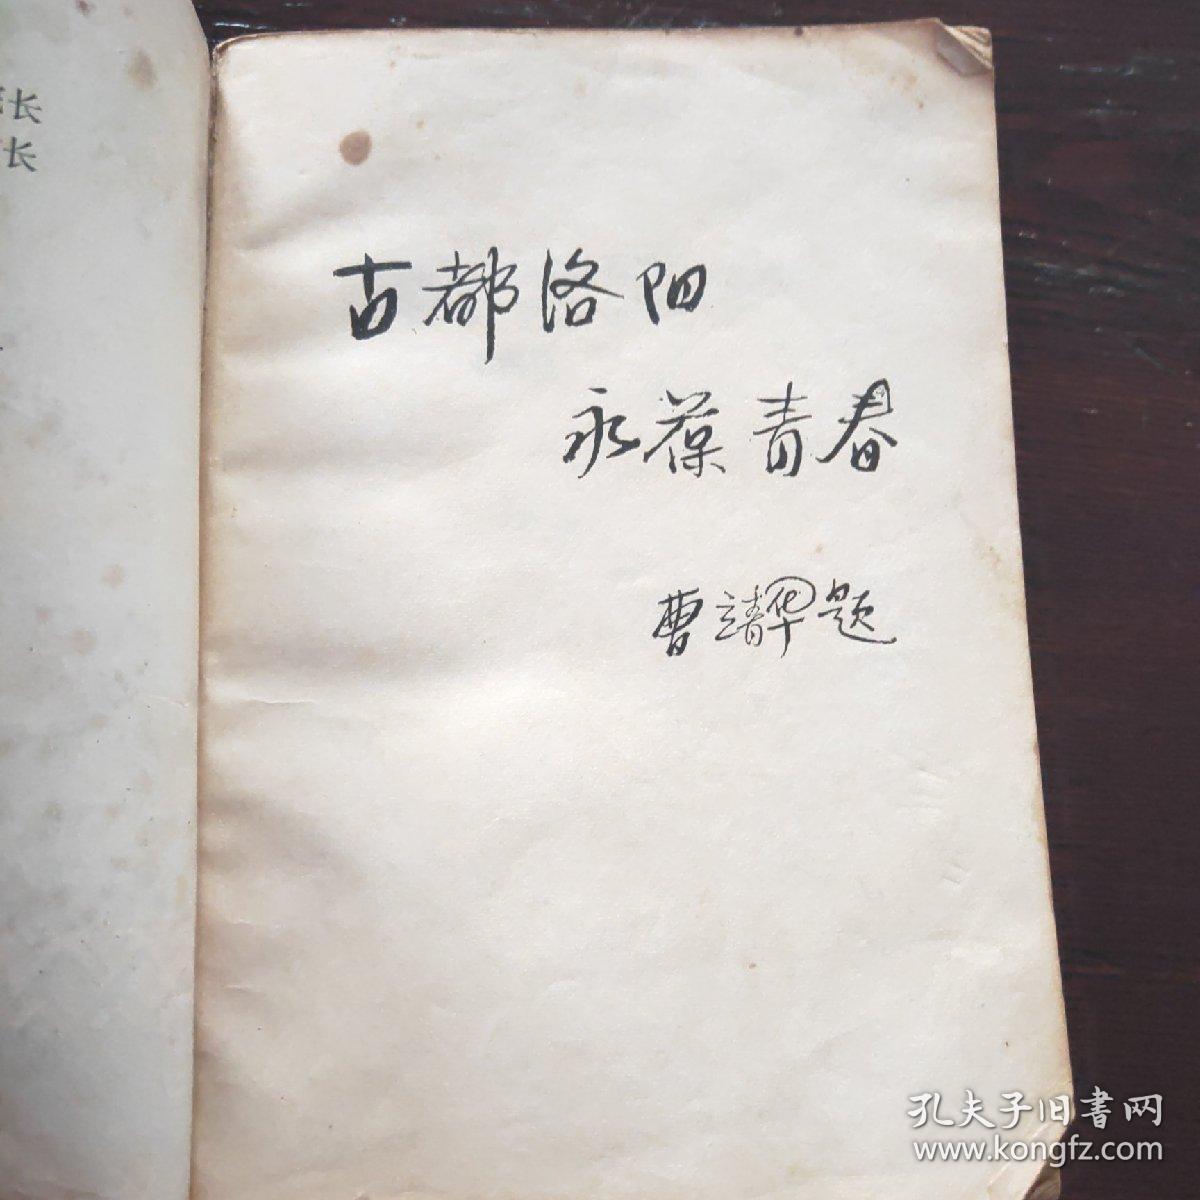 长
长
古都洛阳
永葆青春
曹靖华题
孔夫子旧书网
www.kongfz.com